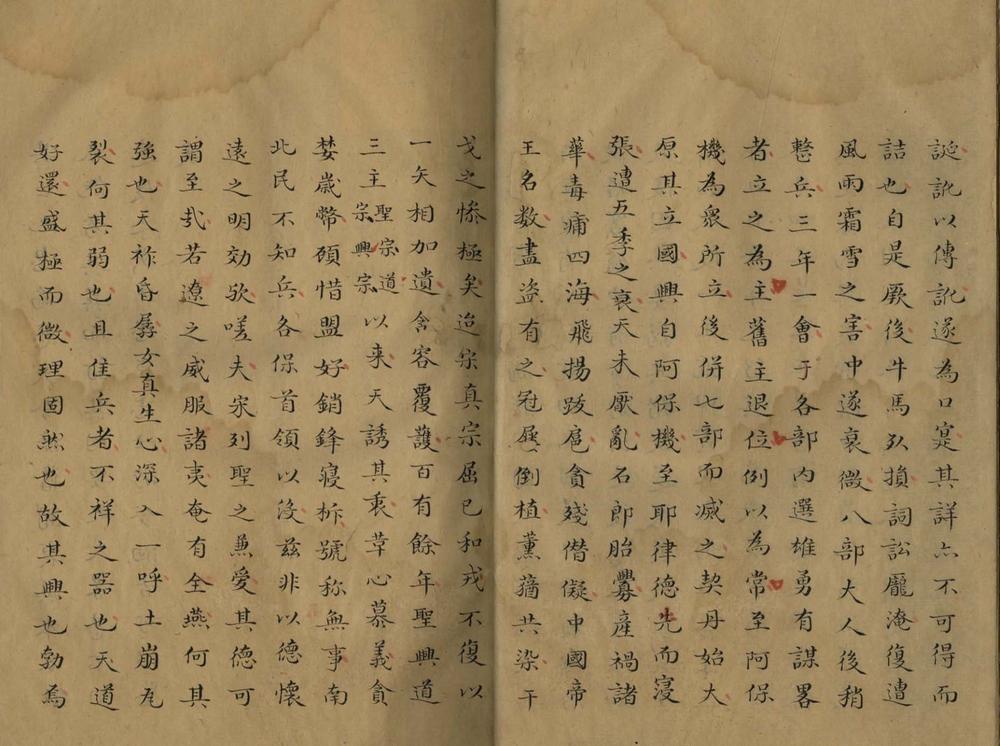 誕訛以傳訛遂為口寔其詳亦不可得而
詰也自是厥後牛馬死損詞訟厖淹復遭
風雨霜雪之害中遂衰微八部大人後稍
整兵三年一會于各部内選雄勇有謀畧
者立之為主舊主退位例以為常至阿保
機為衆所立後併七部而滅之契丹始大
原其立國興自阿保機至耶律德光而寖
張遭五季之衰天未厭亂石郎胎釁產禍諸
華毒痡四海飛揚跋扈貪殘僣儗中國帝
王名数盡盗有之冠屦倒植薫蕕共染干
戈之惨極矣迨宋真宗屈己和戎不復以
一矢相加遺含容覆護百有餘年聖興道
三主聖宗道宗興宗以来天誘其衷草心慕義貪
婪歲幣碩惜盟好銷鋒寝柝號称無事南
北民不知兵各保首領以没兹非以德懐
遠之明効欤嗟夫宋列聖之兼愛其德可
謂至哉若遼之威服諸夷奄有全燕何其
強也天祚昏孱女真生心深入一呼土崩瓦
裂何其弱也且隹兵者不祥之噐也天道
好還盛極而微理固然也故其興也勃焉